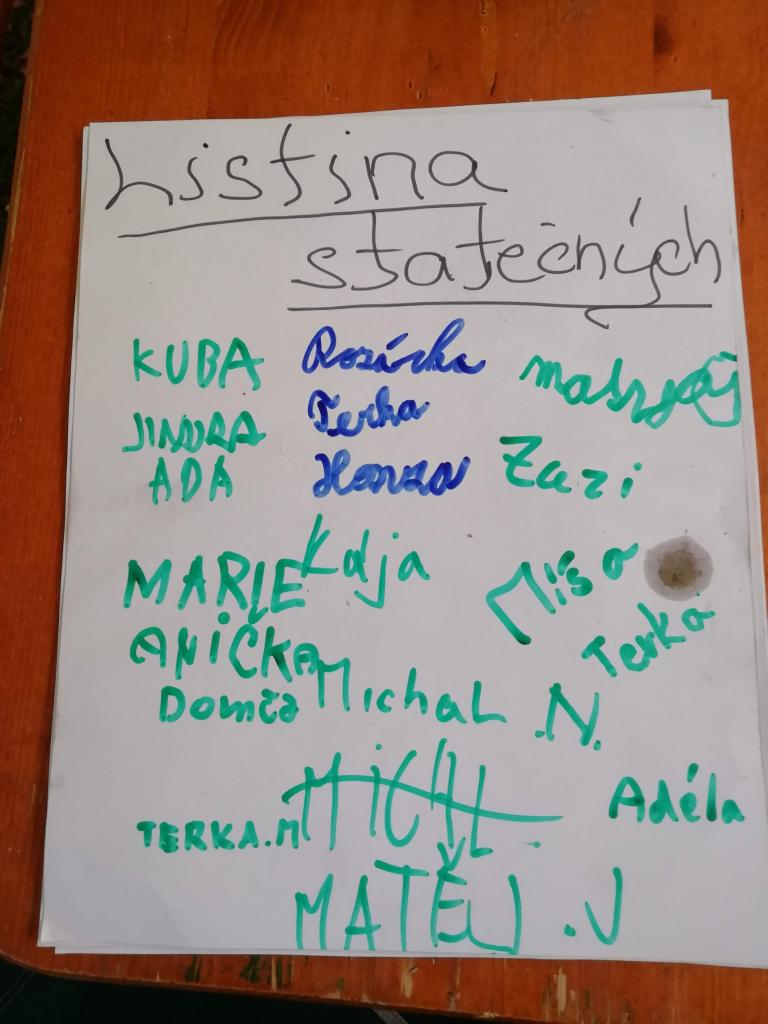 Listina
statečných
KUBA
JINDRA
ADA
MARIE
ANIČKA
Domča
TERKA.M
Rozárka
Terka
Honza
Kája
Michal .N.
MICHL
MATĚJ .V
Zuzi
Míša
Terka
Adéla